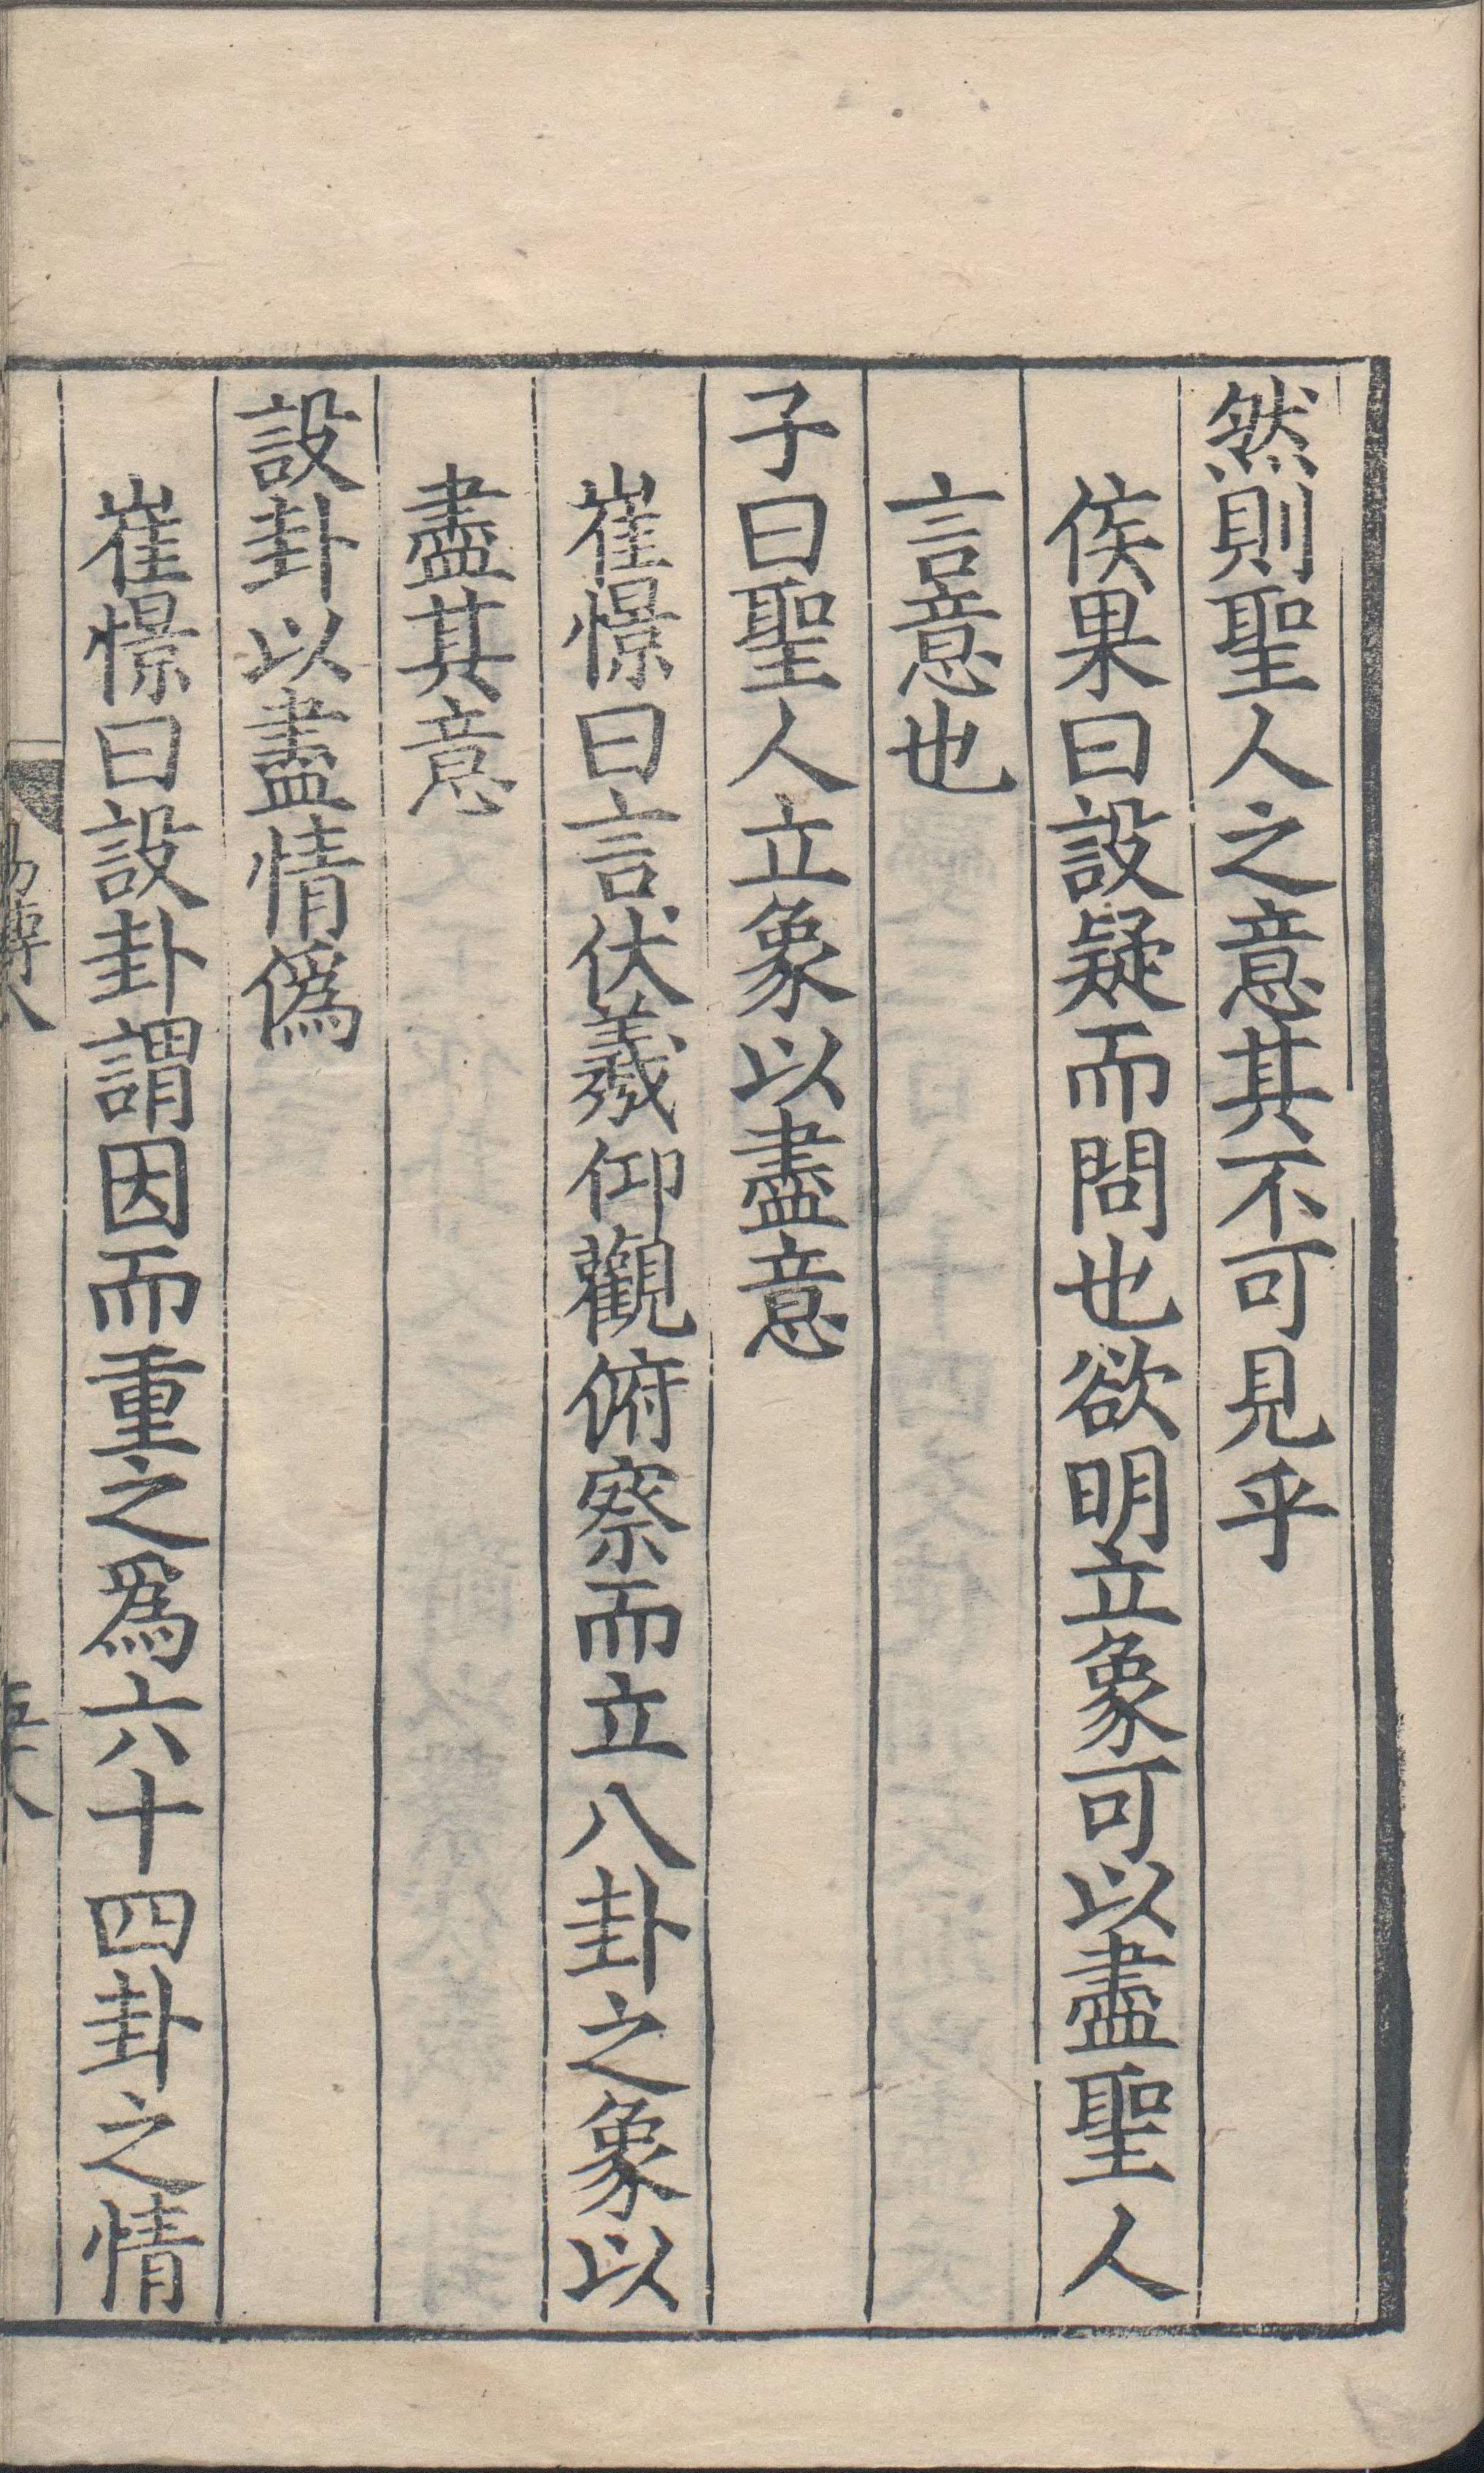 然則聖人之意其不可見乎
侯果曰設疑而問也欲明立象可以盡聖人
言意也
子曰聖人立象以盡意
崔憬曰言伏羲仰觀俯察而立八卦之象以
盡其意
設卦以盡情僞
崔憬曰設卦謂因而重之爲六十四卦之情